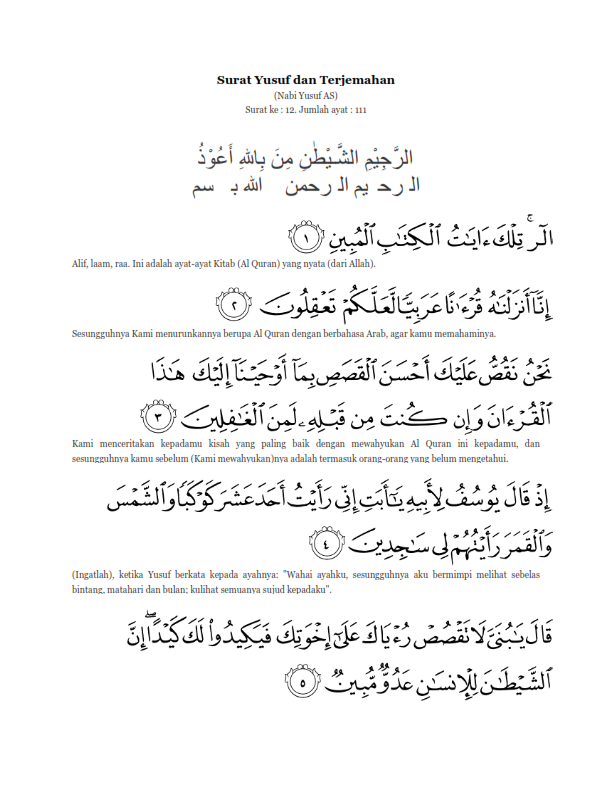 Surat Yusuf dan Terjemahan
(Nabi Yusuf AS)
Surat ke : 12. Jumlah ayat : 111
الرَّجِيْمِ الشَّيْطٰنِ مِنَ بِاللهِ أَعُوْذُ
الـ رحـ يم الـ رحمن الله بـ سم
الٓر ۚ تِلْكَ ءَايَـٰتُ ٱلْكِتَـٰبِ ٱلْمُبِينِ ١
Alif, laam, raa. Ini adalah ayat-ayat Kitab (Al Quran) yang nyata (dari Allah).
إِنَّآ أَنزَلْنَـٰهُ قُرْءَٰنًا عَرَبِيًّا لَّعَلَّكُمْ تَعْقِلُونَ ٢
Sesungguhnya Kami menurunkannya berupa Al Quran dengan berbahasa Arab, agar kamu memahaminya.
نَحْنُ نَقُصُّ عَلَيْكَ أَحْسَنَ ٱلْقَصَصِ بِمَآ أَوْحَيْنَآ إِلَيْكَ هَـٰذَا
ٱلْقُرْءَانَ وَإِن كُنتَ مِن قَبْلِهِۦ لَمِنَ ٱلْغَـٰفِلِينَ ٣
Kami menceritakan kepadamu kisah yang paling baik dengan mewahyukan Al Quran ini kepadamu, dan
sesungguhnya kamu sebelum (Kami mewahyukan)nya adalah termasuk orang-orang yang belum mengetahui.
إِذْ قَالَ يُوسُفُ لِأَبِيهِ يَـٰٓأَبَتِ إِنِّى رَأَيْتُ أَحَدَ عَشَرَ كَوْكَبًا وَٱلشَّمْسَ
وَٱلْقَمَرَ رَأَيْتُهُمْ لِى سَـٰجِدِينَ ٤
(Ingatlah), ketika Yusuf berkata kepada ayahnya: "Wahai ayahku, sesungguhnya aku bermimpi melihat sebelas
bintang, matahari dan bulan; kulihat semuanya sujud kepadaku".
قَالَ يَـٰبُنَىَّ لَا تَقْصُصْ رُءْيَاكَ عَلَىٰٓ إِخْوَتِكَ فَيَكِيدُوا۟ لَكَ كَيْدًا ۖ إِنَّ
ٱلشَّيْطَـٰنَ لِلْإِنسَـٰنِ عَدُوٌّ مُّبِينٌ ٥